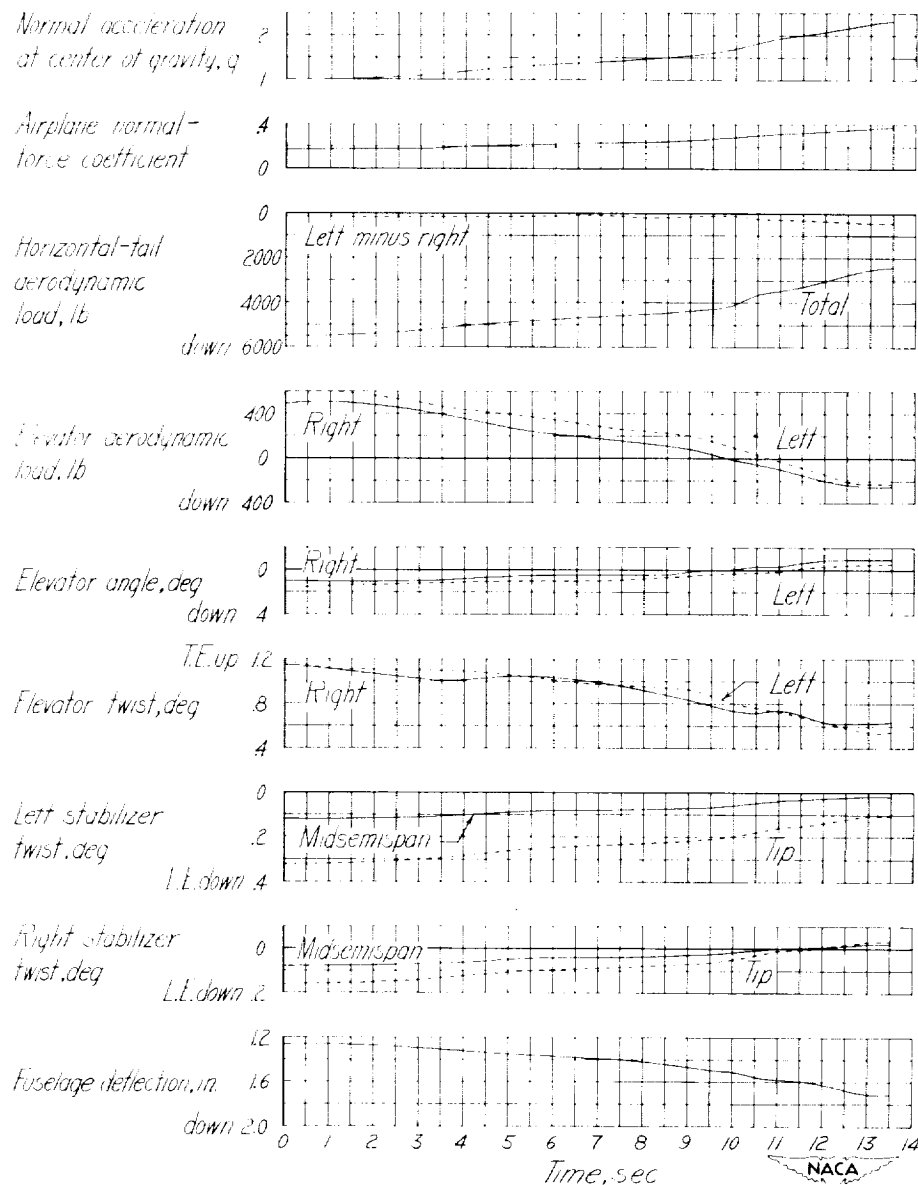 Normal acceleration
at center of gravity, g
2
1
Airplane normal-
force coefficient
.4
0
Horizontal-tail
aerodynamic
load, lb
down
0
2000
4000
6000
Left minus right
Total
Elevator aerodynamic
load, lb
down
400
0
400
Right
Left
Elevator angle, deg
down
0
4
Right
Left
Elevator twist, deg
T.E. up
1.2
.8
.4
Right
Left
Left stabilizer
twist, deg
L.E. down
0
.2
.4
Midsemispan
Tip
Right stabilizer
twist, deg
L.E. down
0
.2
Midsemispan
Tip
Fuselage deflection, in.
down
1.2
1.6
2.0
0 1 2 3 4 5 6 7 8 9 10 11 12 13 14
Time, sec
NACA